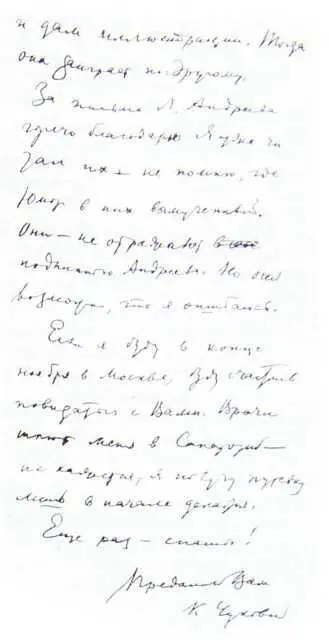 и дам иллюстрации. Тогда
она заиграет по-другому.
За письма Л. Андреева
горячо благодарю. Я уже чи
тал их — не помню, где
Юмор в них вымученный.
Они — не отражают
подлинного Андреева. Но очень
возможно, что я ошибаюсь.
Если я буду в конце
ноября в Москве, буду счастлив
повидаться с Вами. Врачи
шлют меня в Санаторий —
но кажется, я получу путевку
лишь в начале декабря.
Еще раз — спасибо!
Преданный Вам
К Чуковский